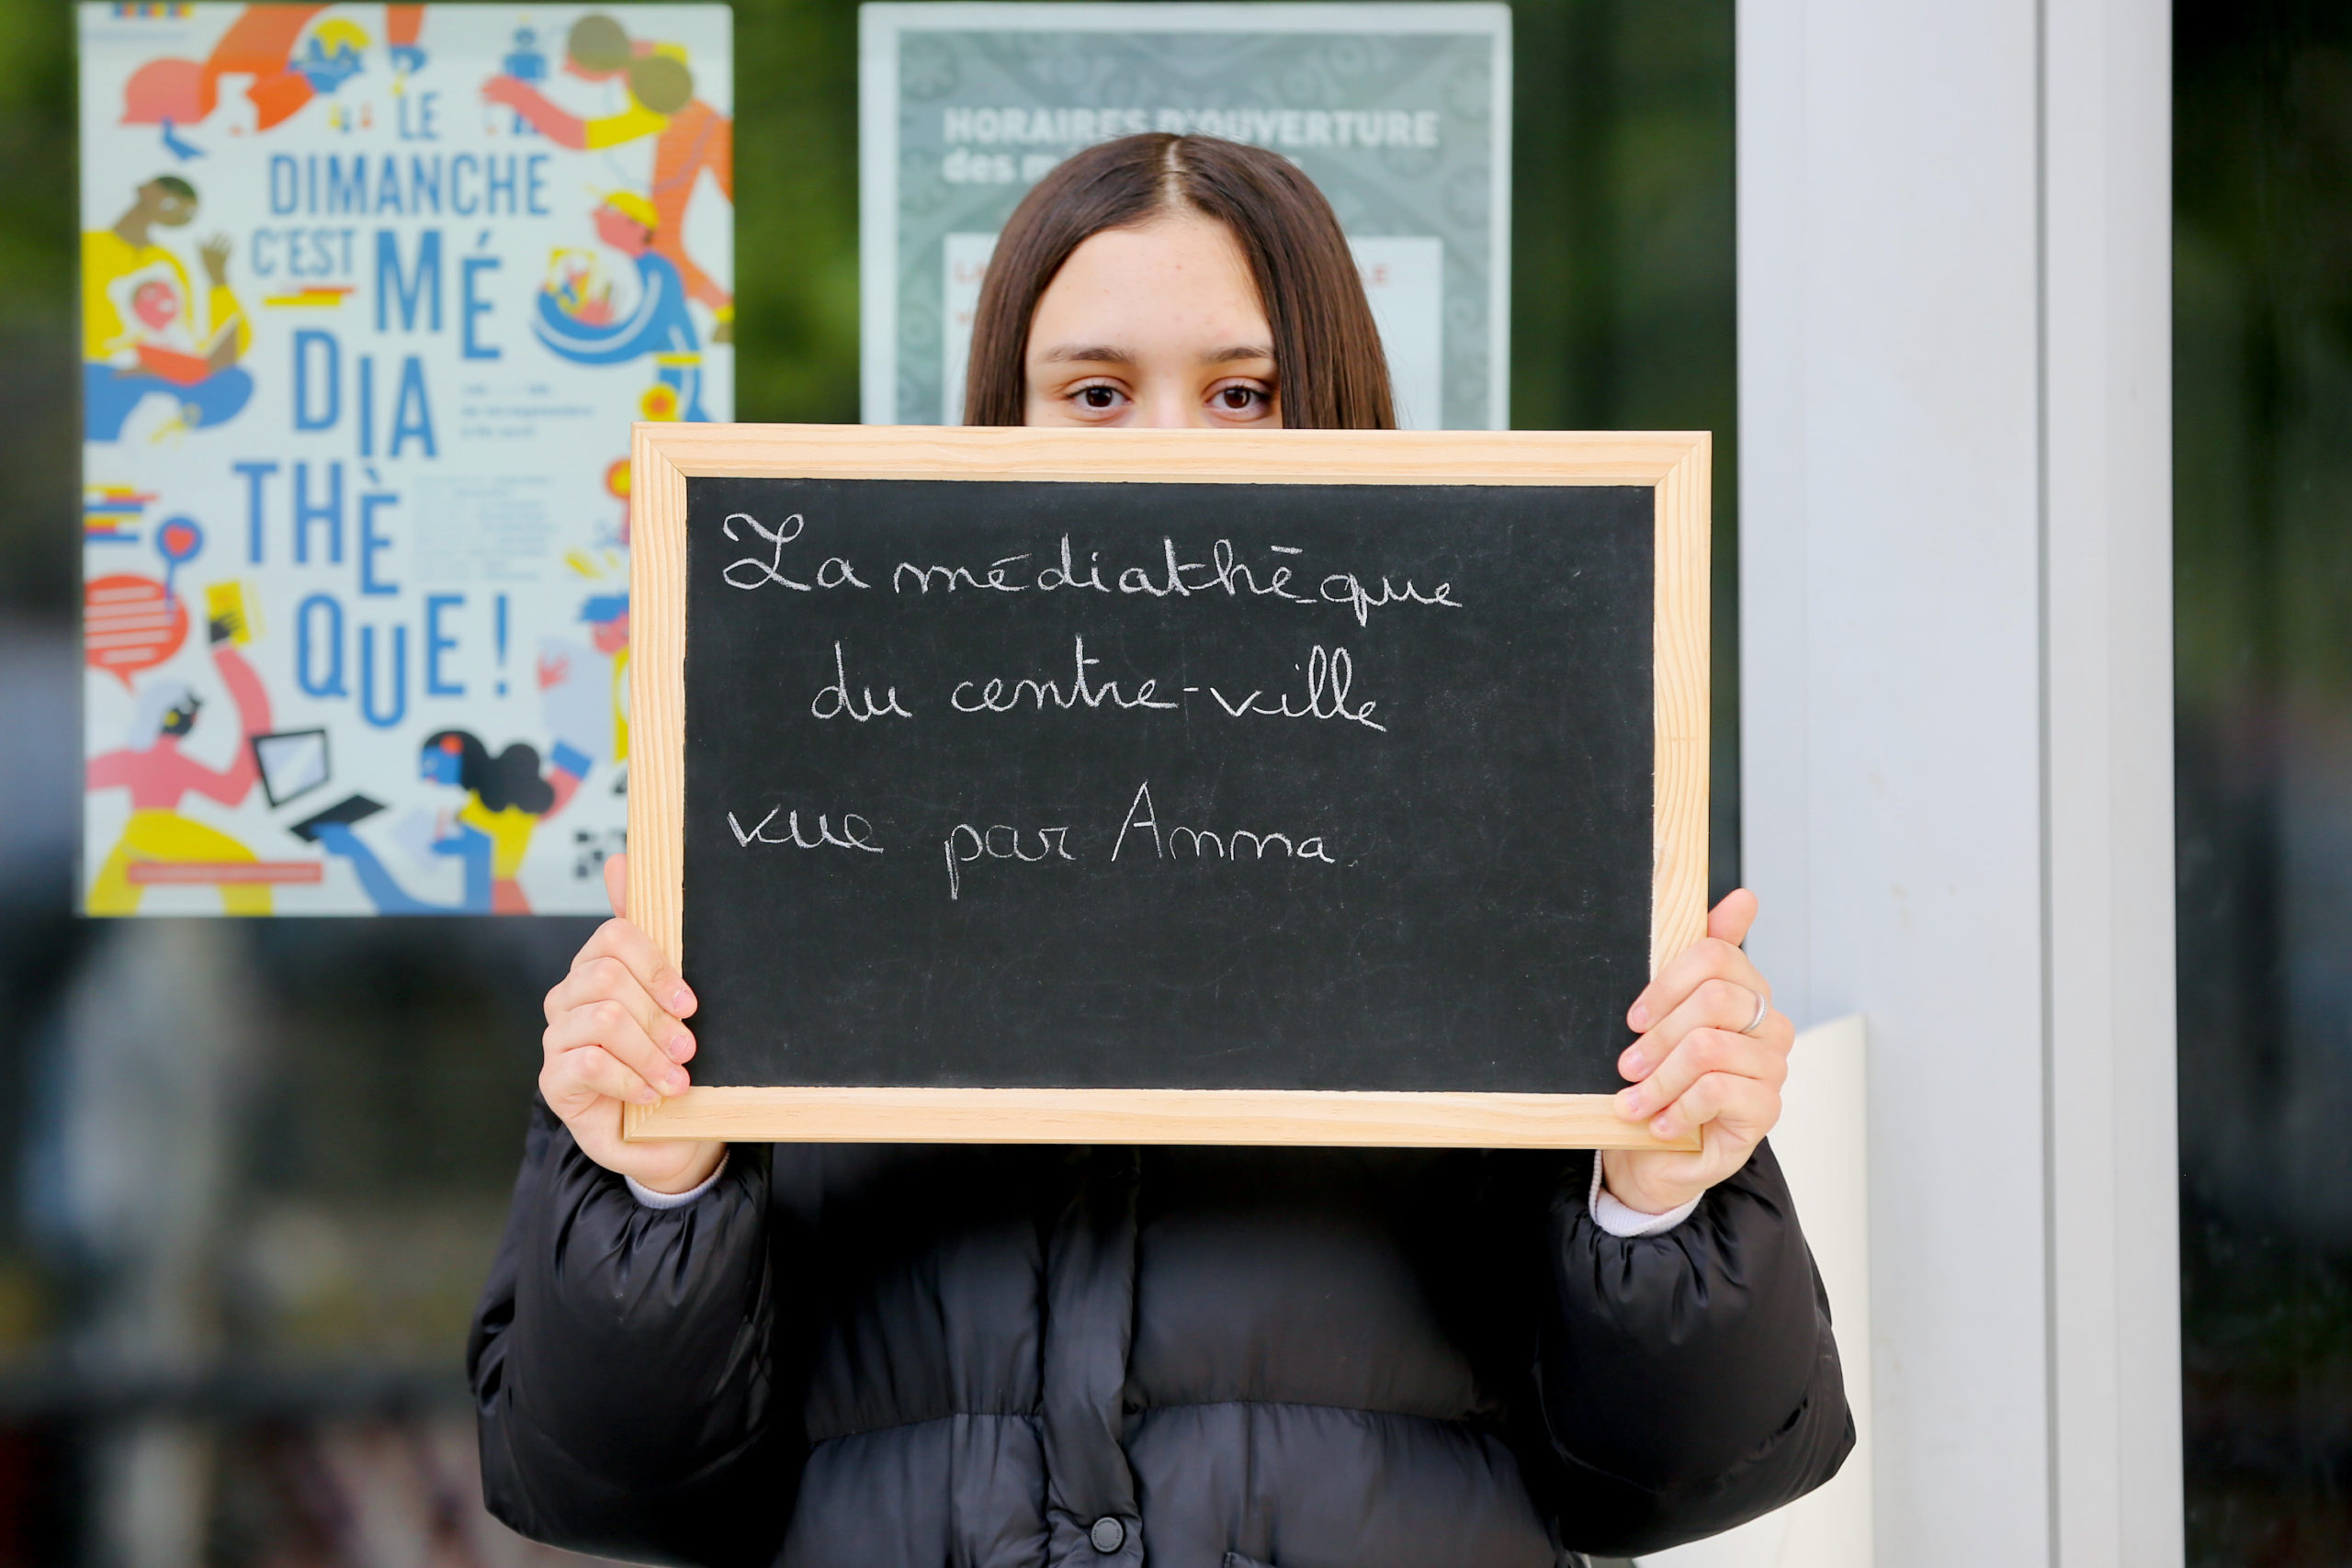 LE
DIMANCHE
C'EST MÉ
DIA
THÈ
QUE!
HORAIRES D'OUVERTURE
des
La médiathèque
du centre-ville
vue par Anna